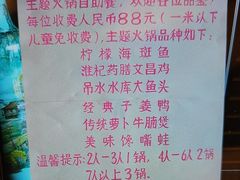 主题火锅自助餐，欢迎各位品鉴，
每位收费人民币88元（一米以下
儿童免收费），主题火锅品种如下：
柠檬海斑鱼
淮杞药膳文昌鸡
吊水水库大鱼头
经典子姜鸭
传统萝卜牛腩煲
美味馋嘴蛙
温馨提示：2人-3人1锅，4人-6人2锅
7人以上3锅.